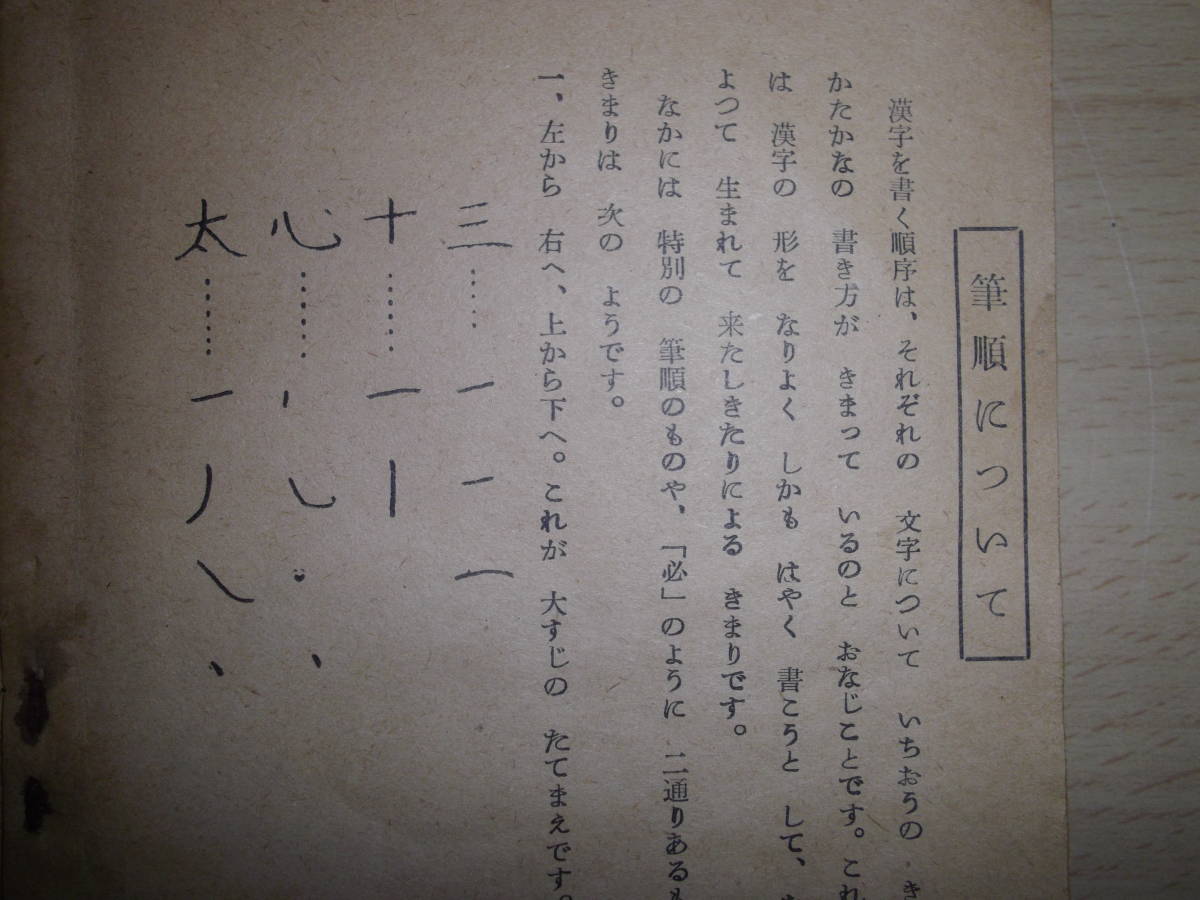 筆順について
漢字を書く順序は、それぞれの 文字について いちおうの き
かたかなの 書き方が きまって いるのと おなじことです。これ
は 漢字の 形を なりよく しかも はやく 書こうと して、
よつて 生まれて 来たしきたりによる きまりです。
なかには 特別の 筆順のものや、「必」のように 二通りあるも
きまりは 次の ようです。
一、左から 右へ、上から下へ。これが 大すじの たてまえです。
三……一 一 一
十……一 丨
心……
太……一 ノ ㇏ 、